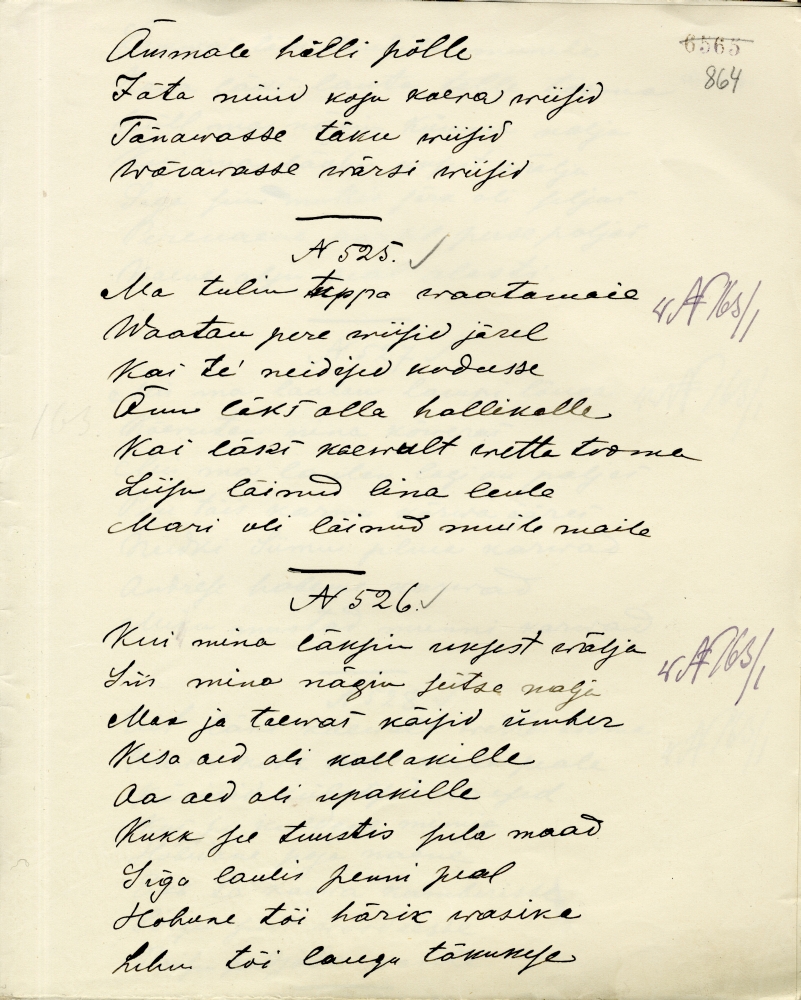 6565
864
Ämmale hälli põlle
Jäta nüüd koju kaera wiisid
Tänawasse täku wiisid
Wärawasse wärsi wiisid
N 525.
Ma tulin tuppa waatamaie
Waatan pere wiisid järel
Kai te' neidised kodusse
Ann läks alla hallikalle
Kai läks kaewult wetta tooma
Liisu läinud lina leule
Mari oli läinud muile maile
N 526.
Kui mina läksin uksest wälja
Siis mina nägin seitse nalja
Maa ja taewas käisid ümber
Kesa aed oli kallakille
Oa aed oli upakille
Kukk see tuustis sula maad
Siga laulis penni peal
Hobune tõi härik wasika
Lehm tõi laugu täkukese